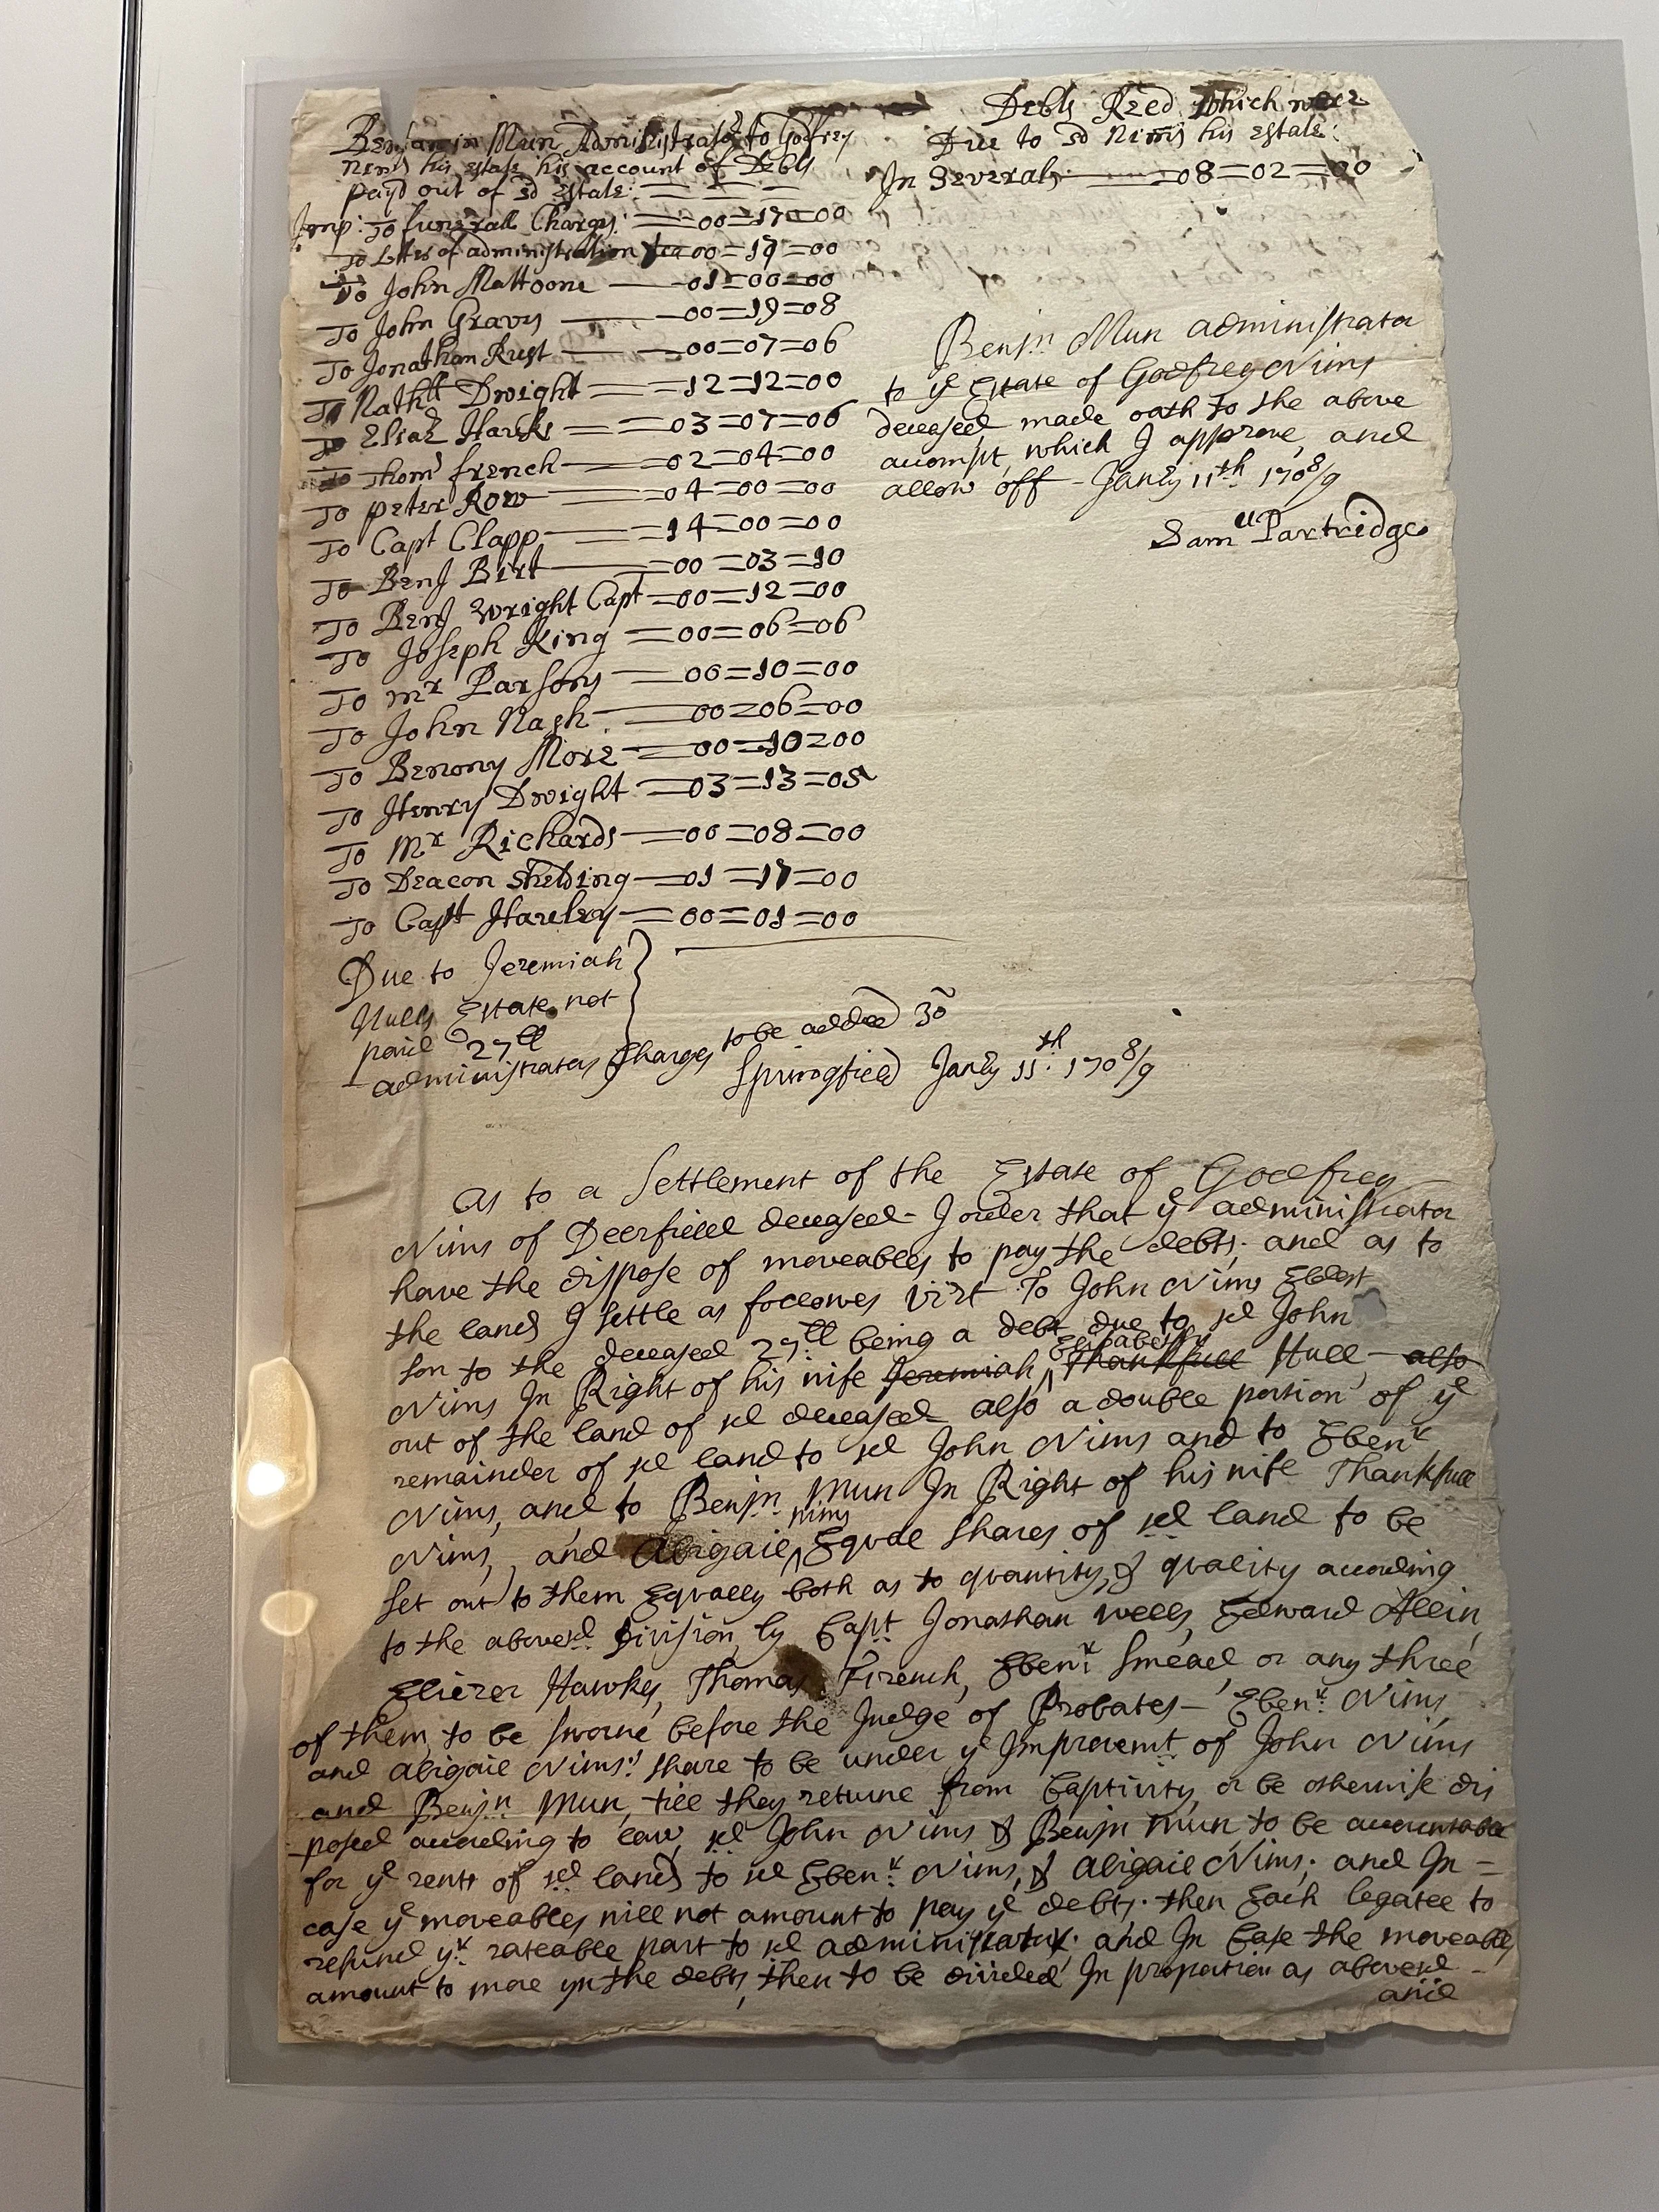 Benjamin Mun Administrator to Godfrey
Nims his estate his account of Debts
payd out of sd Estate:
Imp: To funerall Charges: 00=17=00
To Lttrs of administration 00=19=00
To John Mattoone 01=00=00
To John Graves 00=19=08
To Jonathan Rust 00=07=06
To Nathll Dwight 12=12=00
To Eliaz Hawks 03=07=06
To Thom french 02=04=00
To peter Row 04=00=00
To Capt Clapp 14=00=00
To Benj Birt 00=03=10
To Benj Wright Capt 00=12=00
To Joseph King 00=06=06
To mr Parsons 00=10=00
To John Nash 00=06=00
To Benony More 00=10=00
To Henry Dwight 03=13=05
To Mr Richards 00=08=00
To Deacon Shelding 01=17=00
To Captt Hawley 00=01=00
Due to Jeremiah
Hulls Estate not
paid 27ll
administrators Charges to be added 30
Springfield Janry 11th. 1708/9
Debts Rzed which were
Due to sd Nims his estate:
In Severals 08=02=00
Benjn Mun administrator
to ye Estate of Godfrey Nims
deceased made oath to the above
accompt, which I approve, and
allow off - Janry 11th. 1708/9
Samll Partridge
as to a Settlement of the Estate of Godfrey
Nims of Deerfield deceased - I order that ye administrator
have the dispose of moveables to pay the debts. and as to
the land I settle as followes vizt To John Nims Eldest
son to the deceased 27ll being a debt due to sd John
Nims In Right of his wife Jeremiah Elizabeth Thankfull Hull also
out of the land of sd deceased also a double portion of ye
remainder of sd land to sd John Nims and to Ebenr
Nims, and to Benjn Mun In Right of his wife Thankfull
Nims, and Abigail nims Equall shares of sd land to be
set out to them Equally both as to quantity, & quality according
to the abovesd. Division, by Capt Jonathan Wells, Edward Allein,
Eliezer Hawks, Thomas French, Ebenr Smead or any three
of them, to be sworne before the Judge of Probates - Ebenr. Nims,
and Abigail Nims: share to be under ye Improvemt. of John Nims
and Benjn Mun, till they returne from Captivity, or be otherwise dis
posed according to law, sd John Nims & Benjn Mun to be accountable
for ye rents of sd lands to sd Ebenr. Nims, & Abigail Nims; and In =
case ye moveables will not amount to pay ye debts. then Each legatee to
refund yr rateable part to sd administratr. and In Case the moveables
amount to more yn the debts, then to be divided In proportion as abovesd -
and